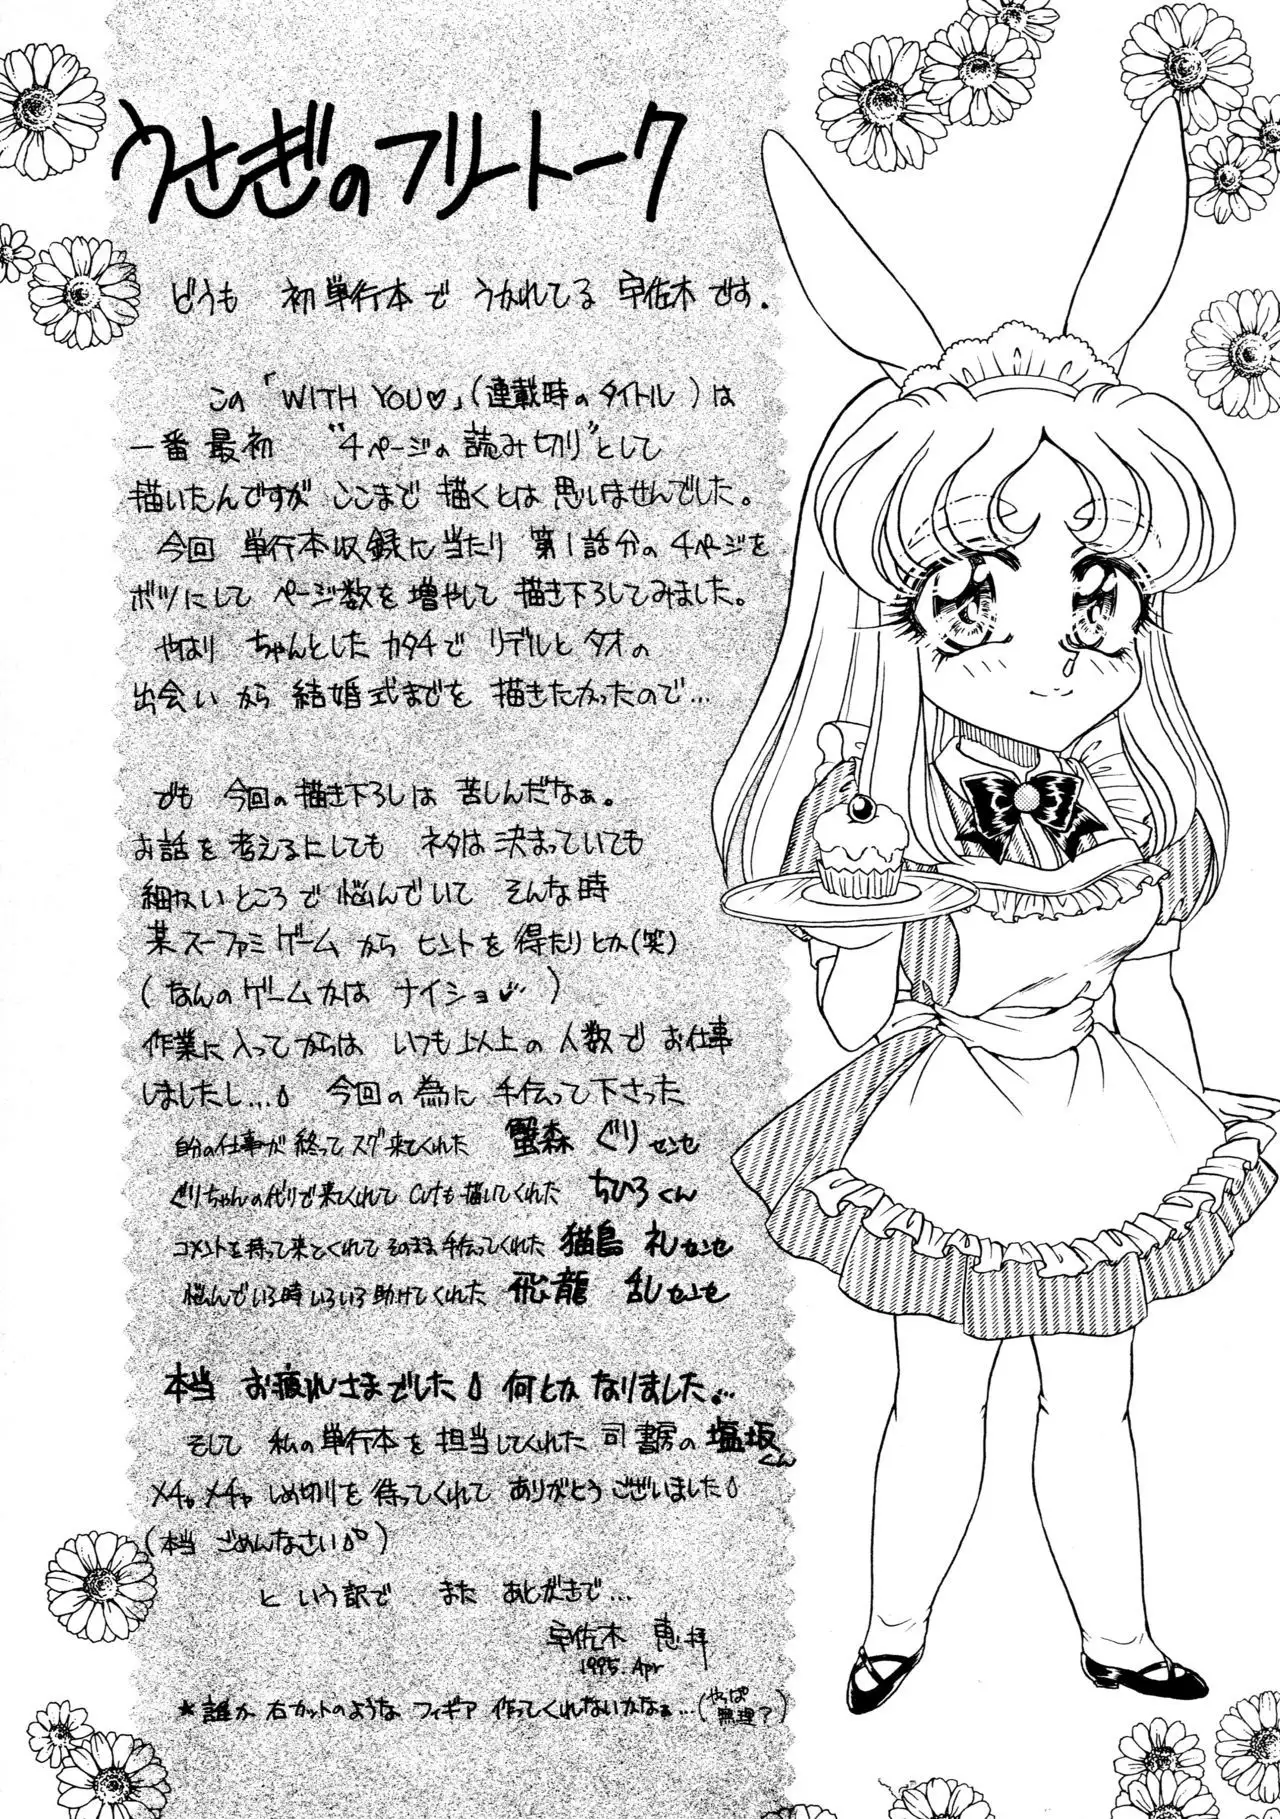 うさぎのフリートーク
どうも 初単行本で うかれてる 宇佐木です.
この「WITH YOU♡」(連載時のタイトル)は
一番最初 “4ページの読み切り”として
描いたんですが ここまで 描くとは 思いませんでした。
今回 単行本収録に当たり 第1話分の4ページを
ボツにして ページ数を増やして 描き下ろしてみました。
やはり ちゃんとしたカタチで リデルとタオの
出会いから 結婚式までを 描きたかったので…
でも 今回の描き下ろしは 苦しんだなぁ。
お話を考えるにしても ネタは決まっていても
細かいところで悩んでいて そんな時
某スーファミゲームから ヒントを得たりとか(笑)
(なんのゲームかは ナイショ♡)
作業に入ってからは いつも以上の人数で お仕事
しましたし… 今回の為に 手伝って下さった
自分の仕事が終ってスグ来てくれた 蟹森 ぐりセンセ
ぐりちゃんの代りで来てくれて Cutも描いてくれた ちひろくん
コメントを持って来てくれて そのまま手伝ってくれた 猫島 礼センセ
悩んでいる時いろいろ助けてくれた 飛龍 乱センセ
本当 お疲れさまでした 何とかなりました…
そして 私の単行本を担当してくれた 司書房の塩坂くん
メチャメチャ しめ切りを待ってくれて ありがとうございました
(本当 ごめんなさい)
という訳で また あとがきで…
宇佐木 恵拝
1995. Apr
★誰か 右カットのような フィギア 作ってくれないかなぁ…(やっぱ無理?)